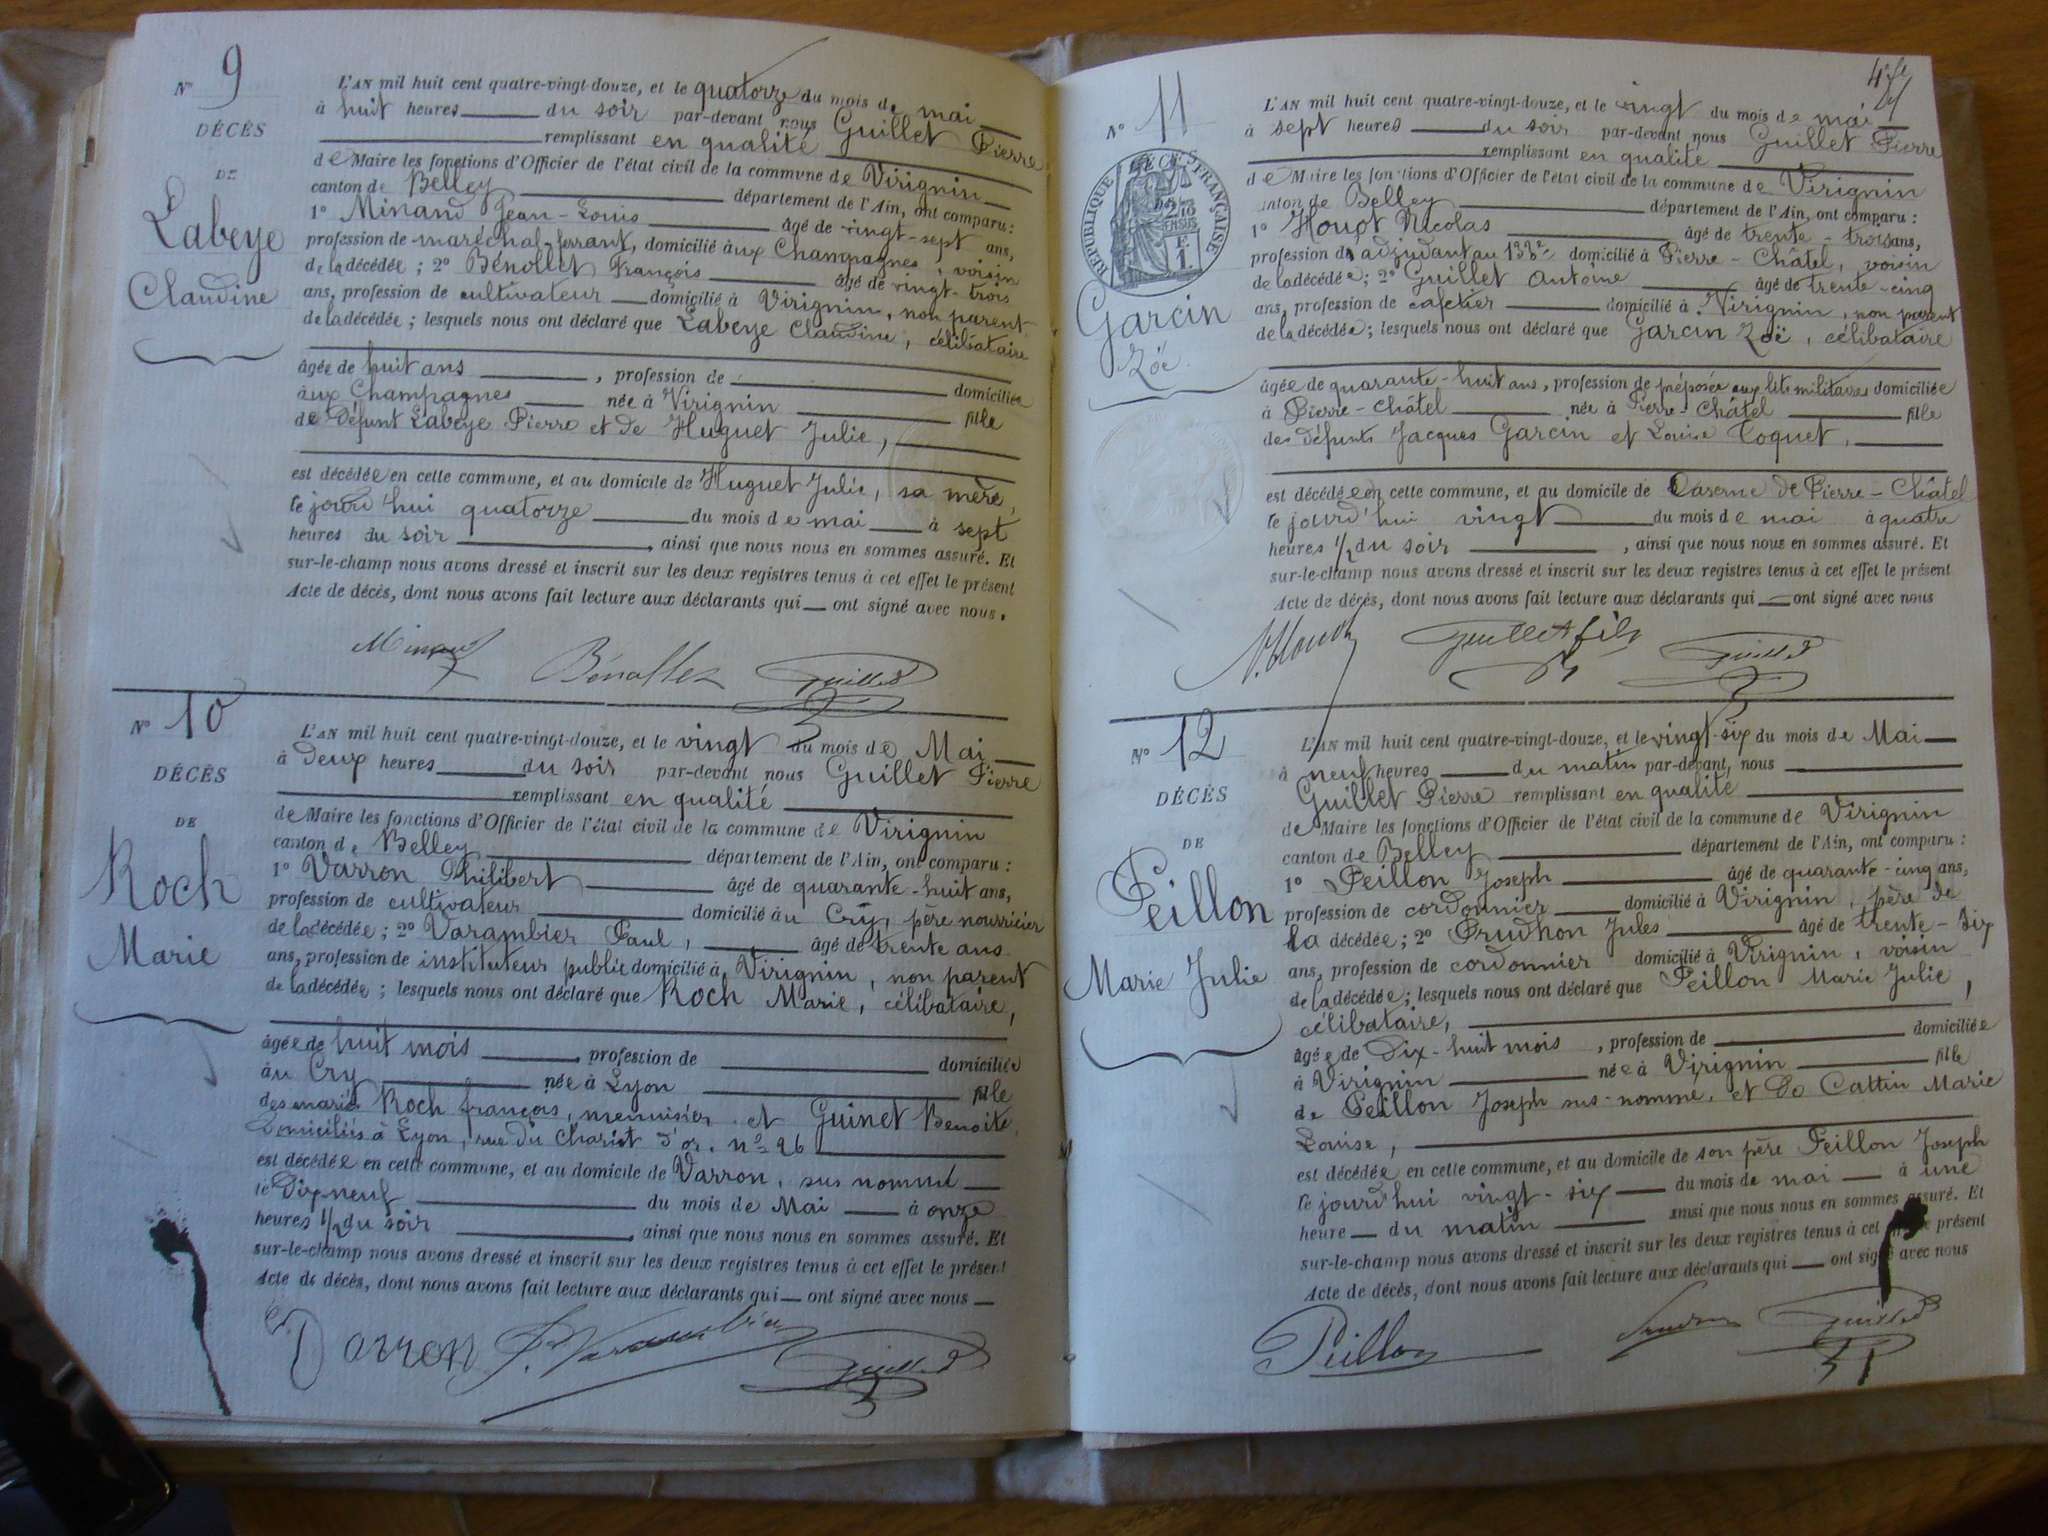 N° 9
DÉCÈS
DE
Labeye
Claudine
L'AN mil huit cent quatre-vingt-douze, et le quatorze du mois de mai
à huit heures du soir par-devant nous Guillet Pierre
remplissant en qualité
de Maire les fonctions d'Officier de l'état civil de la commune de Virignin
canton de Belley département de l'Ain, ont comparu :
1° Minand Jean-Louis âgé de vingt-sept ans,
profession de maréchal-ferrant, domicilié aux Champagnes, voisin
de la décédée ; 2° Bénollet François âgé de vingt-trois
ans, profession de cultivateur domicilié à Virignin, non parent
de la décédée ; lesquels nous ont déclaré que Labeye Claudine, célibataire
âgée de huit ans, profession de domiciliée
aux Champagnes née à Virignin fille
de défunt Labeye Pierre et de Huguet Julie,
est décédée en cette commune, et au domicile de Huguet Julie, sa mère,
le jourd'hui quatorze du mois de mai à sept
heures du soir, ainsi que nous nous en sommes assuré. Et
sur-le-champ nous avons dressé et inscrit sur les deux registres tenus à cet effet le présent
Acte de décès, dont nous avons fait lecture aux déclarants qui ont signé avec nous.
Minand Bénollet Guillet
N° 10
DÉCÈS
DE
Roch
Marie
L'AN mil huit cent quatre-vingt-douze, et le vingt du mois de Mai
à deux heures du soir par-devant nous Guillet Pierre
remplissant en qualité
de Maire les fonctions d'Officier de l'état civil de la commune de Virignin
canton de Belley département de l'Ain, ont comparu :
1° Varron Philibert âgé de quarante-huit ans,
profession de cultivateur domicilié au Cry, père nourricier
de la décédée ; 2° Varambier Paul, âgé de trente ans
ans, profession de instituteur public domicilié à Virignin, non parent
de la décédée ; lesquels nous ont déclaré que Roch Marie, célibataire,
âgée de huit mois, profession de domiciliée
au Cry née à Lyon fille
des mariés Roch françois, menuisier et Guinet Benoite,
domiciliés à Lyon, rue du Chariot d'or, n° 26
est décédée en cette commune, et au domicile de Varron, sus nommé
le Dix neuf du mois de Mai à onze
heures 1/2 du soir, ainsi que nous nous en sommes assuré. Et
sur-le-champ nous avons dressé et inscrit sur les deux registres tenus à cet effet le présent
Acte de décès, dont nous avons fait lecture aux déclarants qui ont signé avec nous
Varron P. Varambier Guillet
N° 11
DÉCÈS
RÉPUBLIQUE FRANÇAISE
Garcin
Zöé
L'AN mil huit cent quatre-vingt-douze, et le vingt du mois de mai
à sept heures du soir par-devant nous Guillet Pierre
remplissant en qualité
de Maire les fonctions d'Officier de l'état civil de la commune de Virignin
canton de Belley département de l'Ain, ont comparu :
1° Houot Nicolas âgé de trente-trois ans,
profession de adjudant au 133e domicilié à Pierre-Châtel, voisin
de la décédée ; 2° Guillet Antoine âgé de trente-cinq
ans, profession de cafetier domicilié à Virignin, non parent
de la décédée ; lesquels nous ont déclaré que Garcin Zoë, célibataire
âgée de quarante-huit ans, profession de préposée aux lits militaires domiciliée
à Pierre-Châtel née à Pierre-Châtel fille
des défunts Jacques Garcin et Louise Coquet,
est décédée en cette commune, et au domicile de Caserne de Pierre-Châtel
le jourd'hui vingt du mois de mai à quatre
heures 1/2 du soir, ainsi que nous nous en sommes assuré. Et
sur-le-champ nous avons dressé et inscrit sur les deux registres tenus à cet effet le présent
Acte de décès, dont nous avons fait lecture aux déclarants qui ont signé avec nous
N. Houot Guillet fils Guillet
N° 12
DÉCÈS
DE
Peillon
Marie Julie
L'AN mil huit cent quatre-vingt-douze, et le vingt-six du mois de Mai
à neuf heures du matin par-devant nous
Guillet Pierre remplissant en qualité
de Maire les fonctions d'Officier de l'état civil de la commune de Virignin
canton de Belley département de l'Ain, ont comparu :
1° Peillon Joseph âgé de quarante-cinq ans,
profession de cordonnier domicilié à Virignin, père de
la décédée ; 2° Prudhon Jules âgé de trente-six
ans, profession de cordonnier domicilié à Virignin, voisin
de la décédée ; lesquels nous ont déclaré que Peillon Marie Julie,
célibataire,
âgée de Dix-huit mois, profession de domiciliée
à Virignin née à Virignin fille
de Peillon Joseph sus-nommé, et de Cattin Marie
Louise,
est décédée en cette commune, et au domicile de son père Peillon Joseph
le jourd'hui vingt-six du mois de mai à une
heure du matin ainsi que nous nous en sommes assuré. Et
sur-le-champ nous avons dressé et inscrit sur les deux registres tenus à cet effet le présent
Acte de décès, dont nous avons fait lecture aux déclarants qui ont signé avec nous
Peillon Prudhon Guillet